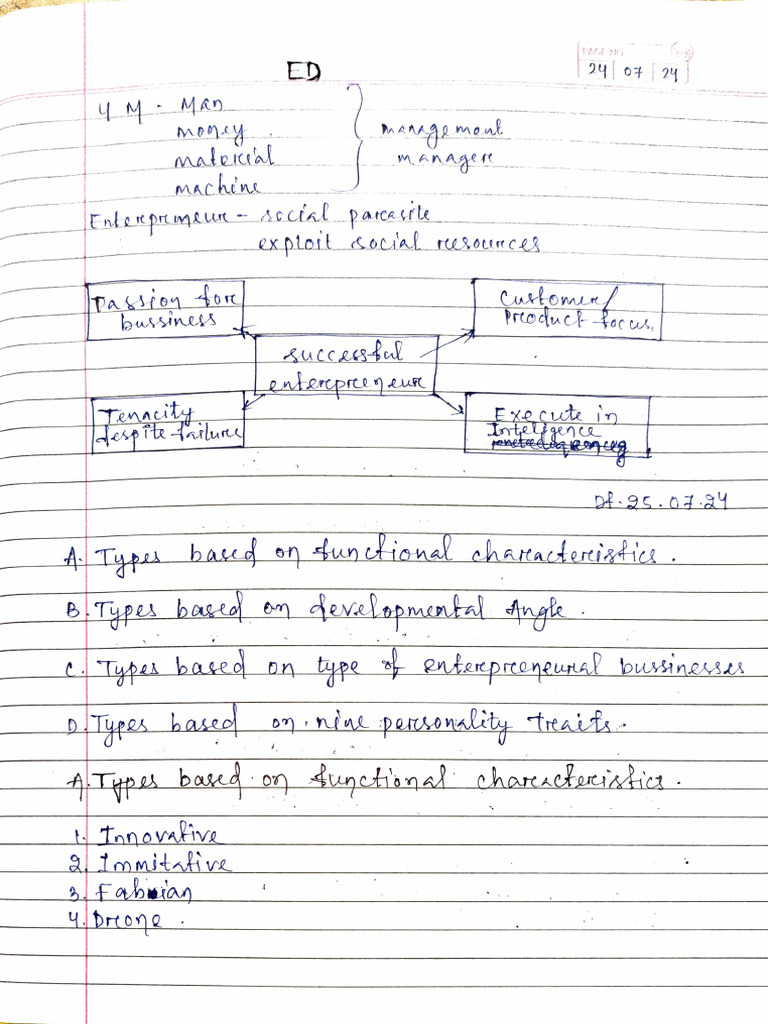 PAGE NO.
24 07 24
ED
4 M - Man
money
material
machine
management
manager
Enterpreneur - social parasite
exploit social resources
Passion for
bussiness
Customer/
Product focus.
successful
enterpreneur
Tenacity
despite failure
Execute in
Inteligence
Dt. 25.07.24
A. Types based on functional characteristics.
B. Types based on developmental Angle.
C. Types based on type of enterpreneural bussinesses
D. Types based on nine personality traits.
A. Types based on functional characteristics.
1. Innovative
2. Immitative
3. Fabian
4. Drone.